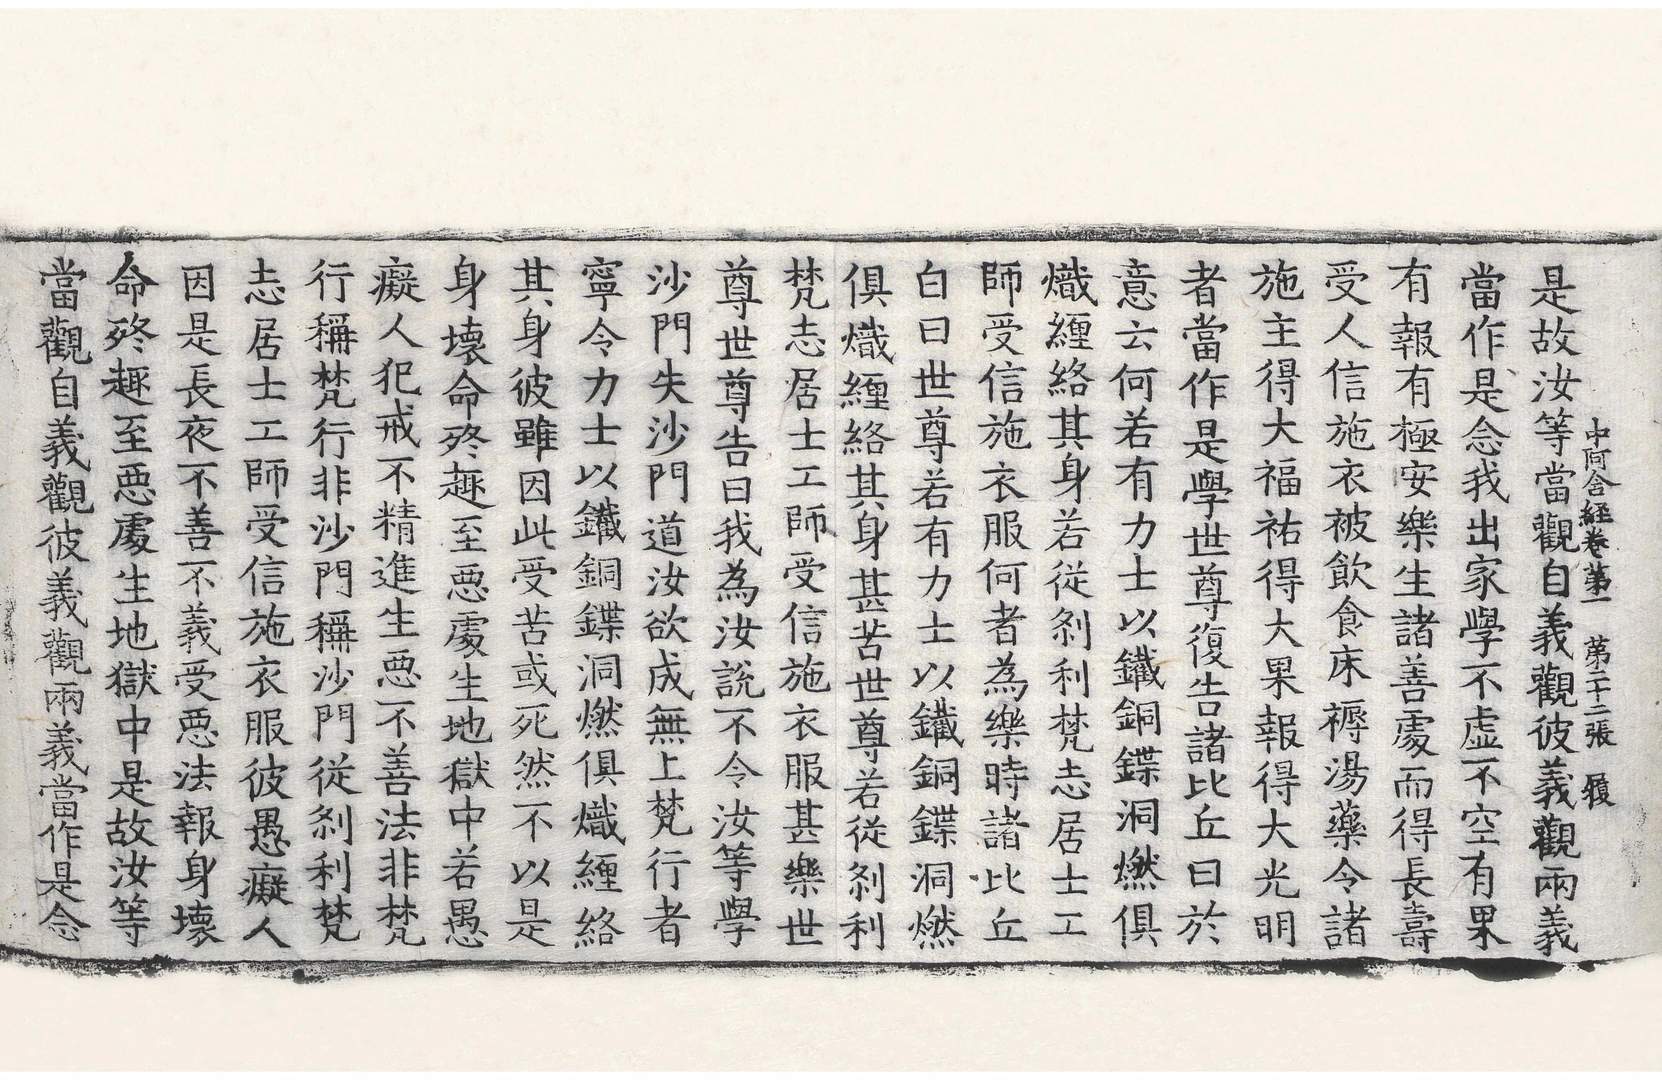 中阿含経卷第一　第二十二張　履
是故汝等當觀自義觀彼義觀兩義
當作是念我出家學不虛不空有果
有報有極安樂生諸善處而得長壽
受人信施衣被飲食床褥湯藥令諸
施主得大福祐得大果報得大光明
者當作是學世尊復告諸比丘曰於
意云何若有力士以鐵銅鍱洞燃俱
熾纏絡其身若從剎利梵志居士工
師受信施衣服何者為樂時諸比丘
白曰世尊若有力士以鐵銅鍱洞燃
俱熾纏絡其身甚苦世尊若從剎利
梵志居士工師受信施衣服甚樂世
尊世尊告曰我為汝說不令汝等學
沙門失沙門道汝欲成無上梵行者
寧令力士以鐵銅鍱洞燃俱熾纏絡
其身彼雖因此受苦或死然不以是
身壞命終趣至惡處生地獄中若愚
癡人犯戒不精進生惡不善法非梵
行稱梵行非沙門稱沙門從剎利梵
志居士工師受信施衣服彼愚癡人
因是長夜不善不義受惡法報身壞
命終趣至惡處生地獄中是故汝等
當觀自義觀彼義觀兩義當作是念